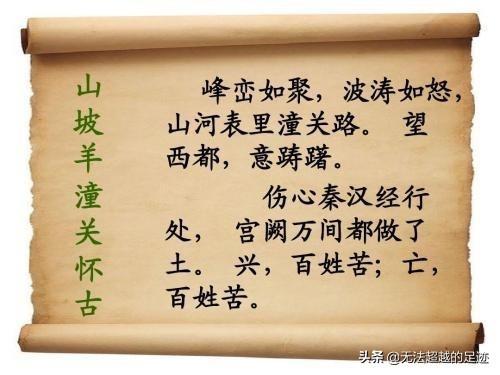 山坡羊潼关怀古
峰峦如聚，波涛如怒，
山河表里潼关路。 望
西都，意踌躇。
伤心秦汉经行
处， 宫阙万间都做了
土。 兴，百姓苦；亡，
百姓苦。
头条 @无法超越的足迹